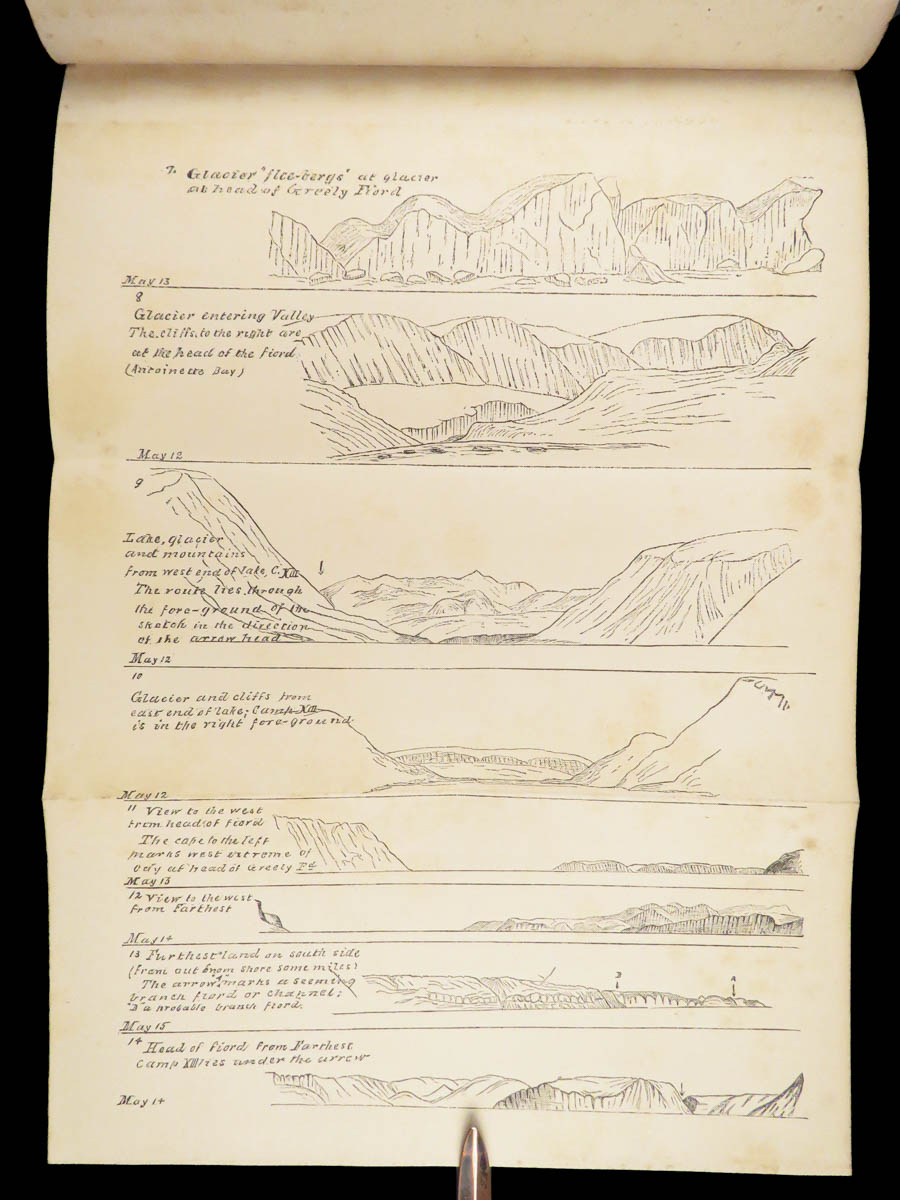 7. Glacier "floe-bergs" at glacier
at head of Greely Fiord
May 13
8
Glacier entering Valley
The cliffs to the right are
at the head of the fiord
(Antoinette Bay)
May 12
9
Lake, glacier
and mountains
from west end of lake, C. XIII
The route lies through
the fore-ground of the
sketch in the direction
of the arrow head
May 12
10
Glacier and cliffs from
east end of lake; Camp XIII
is in the right fore-ground.
May 12
11 View to the west
from head of fiord
The cape to the left
marks west extreme of
bay at head of Greely Fd
May 13
12 View to the west
from Farthest
May 14
13 Furthest land on south side
(from out from shore some miles)
The arrow "A" marks a seeming
branch fiord or channel;
"B" a probable branch fiord.
B A
May 15
14 Head of fiord from Farthest
Camp XIII lies under the arrow
May 14